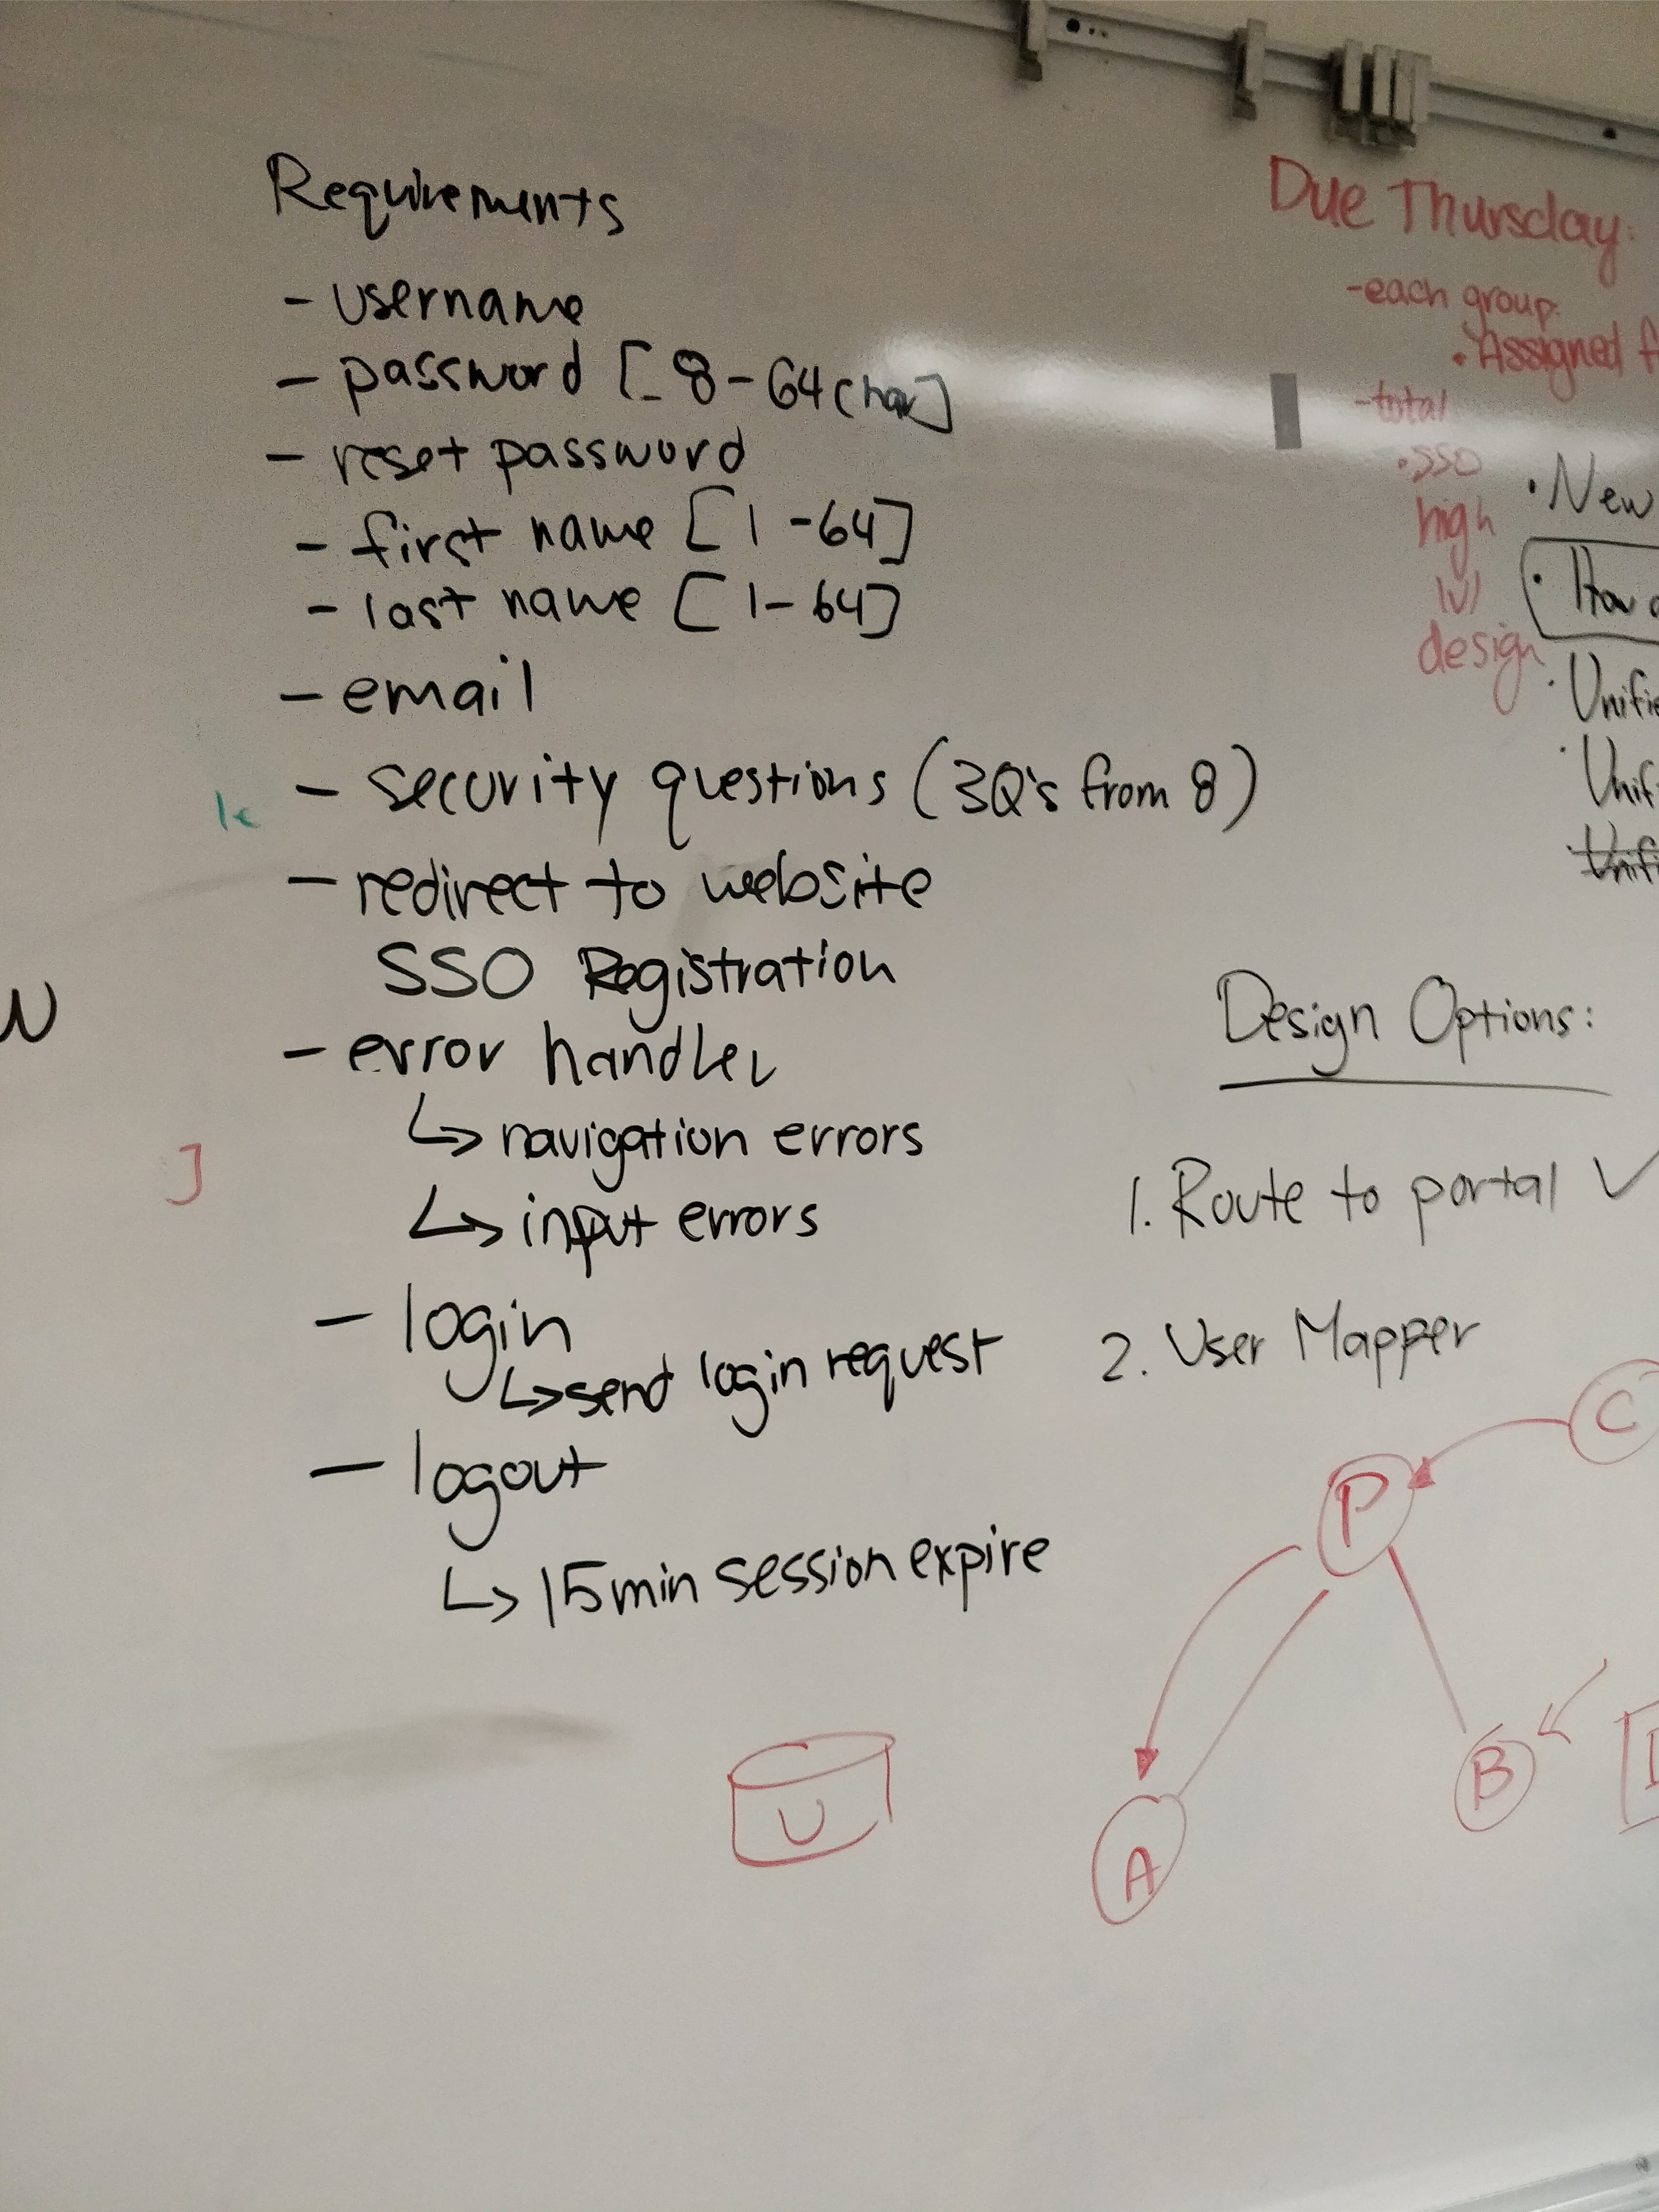 Requirements
- username
- password [8-64 char]
- reset password
- first name [1-64]
- last name [1-64]
- email
- security questions (3Q's from 8)
- redirect to website
SSO Registration
- error handler
↳ navigation errors
↳ input errors
- login
↳ send login request
- logout
↳ 15min session expire
Due Thursday:
- each group:
• Assigned
- total
• SSO
high
lvl
design
• New
Design Options:
1. Route to portal ✓
2. User Mapper
C
P
A
B
U
J